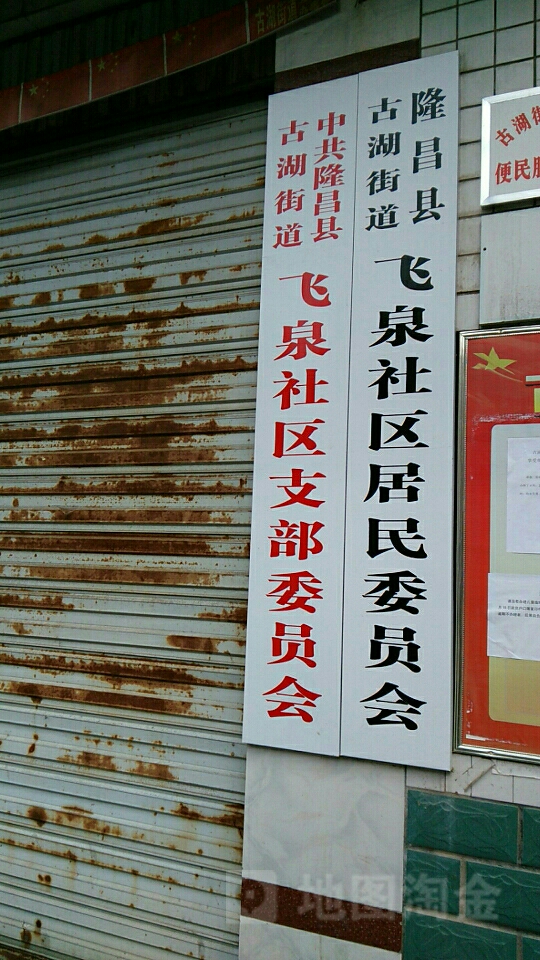 古湖街道
隆昌县
古湖街道
飞泉社区居民委员会
中共隆昌县
古湖街道
飞泉社区支部委员会
古湖街
便民服
地图淘金